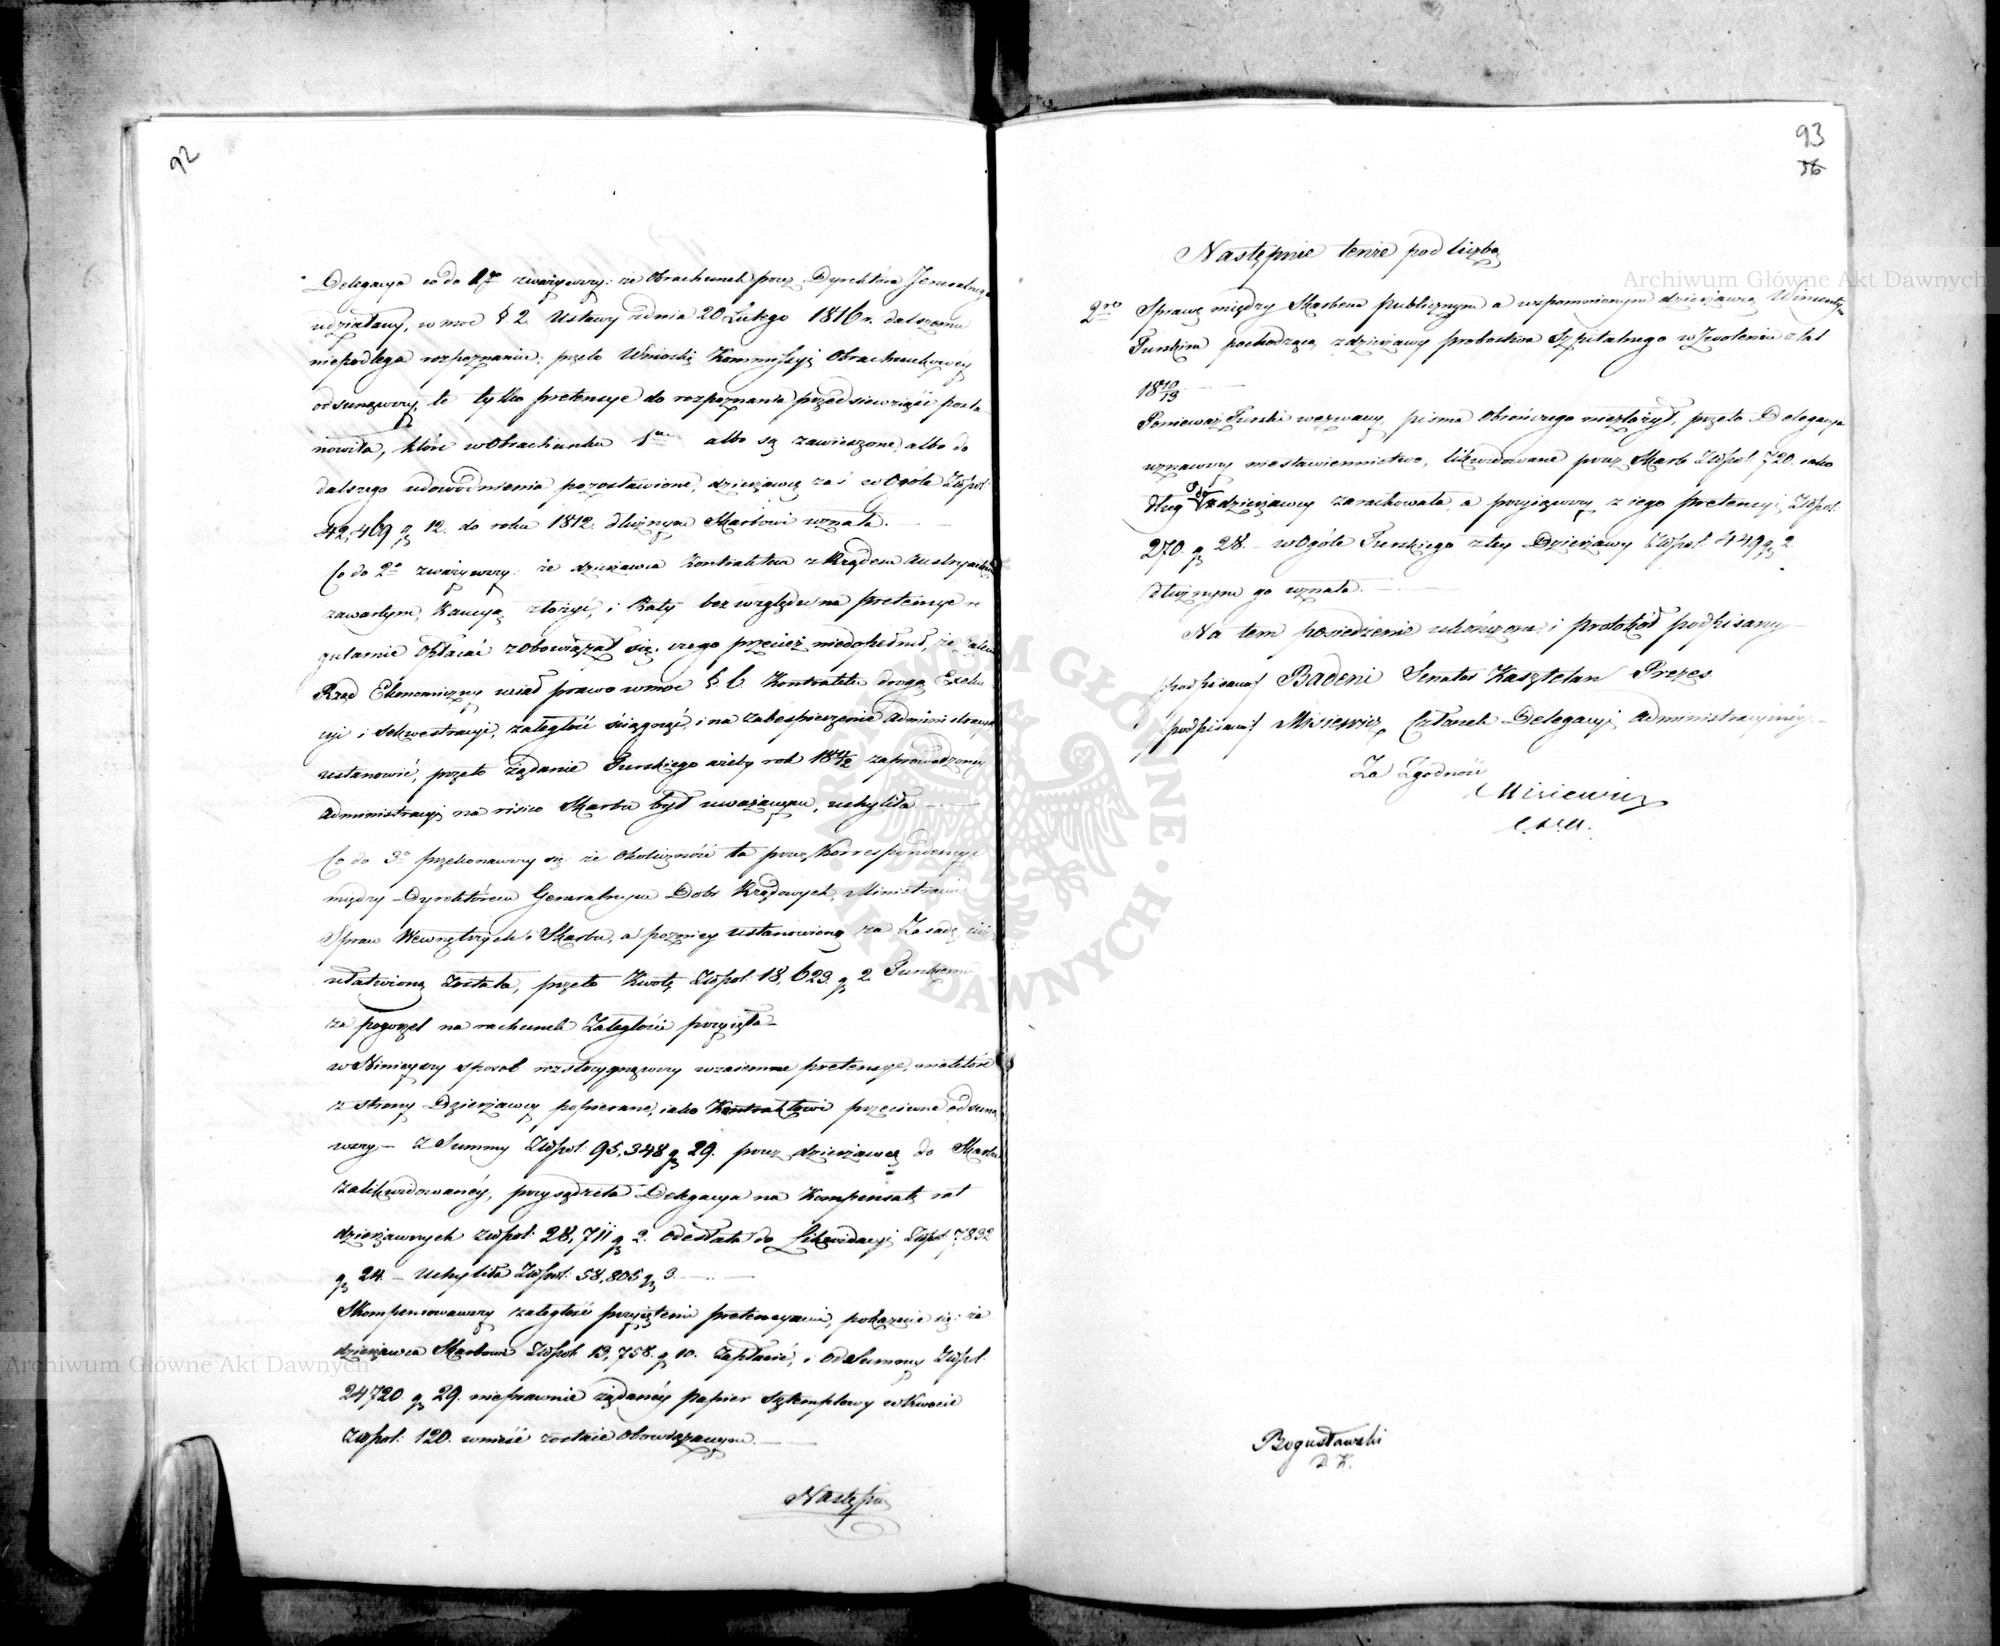 92
Delegacya co do 1go zważywszy: że Obrachunek przez Dyrektora Jeneralnego
udziałany, w moc § 2. Ustawy z dnia 20 Lutego 1816 r. dalszemu
niepodlega rozpoznaniu; przeto Wnioski Kommissyi Obrachunkowéy
odsunąwszy, te tylko pretensye do rozpoznania przedsiewziąść posta-
nowiła, które w Obrachunku albo są zawieszone, albo do
dalszego udowodnienia pozostawione, dzierżawcę zaś w Ogóle Złpol:
42,469 gr 12. do roku 1812. dłużnym Skarbowi uznała.
Co do 2o zważywszy: że dzierżawca Kontraktem z Rządem Austryackim
zawartym, Kaucyą złożyć, i Raty bez względu na pretensye re
gularnie opłacać zobowiązał się, czego przecież niedopełnił, że zatem
Rząd Ekonomiczny miał prawo w moc § 6. Kontraktu drogą Exeku-
cyi i Sekwestracyi, zaległość ściągnąć, i na zabespieczenie Administracyą
ustanowić, przeto żądanie Turskiego ażeby rok 1811/12 zaprowadzonéy
Administracyi na risico Skarbu był uważanym, uchyliła
Co do 3o przekonawszy się że okoliczność ta przez Korrespondencye
między Dyrektorem Generalnym Dobr Rządowych, Ministrami
Spraw Wewnętrznych i Skarbu, a poźniey ustanowioną za Zasadę
ułatwioną została, przeto Kwotę Złpol: 18,623. gr 2. Turskiemu
za pogorzel na rachunek Zaległości przyięła
w Niniejszy sposob rozstrzygnąwszy wzaiemne pretensye, niektóre
z strony Dzierżawcy popierane, iako Kontraktowi przeciwne odsuną
wszy – Z Summy Złpol: 95,348 gr 29. przez dzierżawcę do Skarbu
zalikwidowanéy, przysądziła Delegacya na Kompensatę rat
dzierżawnych Złpol: 28,711 gr 2. odesłała do Likwidacyi Złpol: 7832
gr 24. – Uchyliła Złpol: 58,805 gr 3.
Skompensowawszy zaległość przyiętemi pretensyami, pokazuie się: że
dzierżawca Skarbowi Złpol: 13,758. gr 10. Zapłacić, i od Summy Złpol:
24720. gr 29. nieprawnie żądanéy papier sztemplowy w Kwocie
Złpol: 120. wnieść zostaie obowiązanym.
Następnie
93
56
Następnie tenże pod liczbą
2do Sprawę między Skarbem publicznym a wspomnionym dzierżawcą Wincentym
Turskim pochodzącą z dzierżawy probostwa Szpitalnego w Zwoleniu z lat
1810/13.
Ponieważ Turski wezwany pisma Obrończego niezłożył, przeto Delegacya
uznawszy niestawiennictwo, likwidowane przez Skarb Złpol: 720. iako
dług dzierżawcy zarachowała, a przyiąwszy z iego pretensyi Złpol:
270. gr 28. – w Ogóle Turskiego z tey Dzierżawy Złpol: 449 gr 2.
dłużnym go uznała.
Na tem posiedzenie ukończono, i protokół podpisany
/podpisano/ Badeni Senator Kasztelan Prezes
/podpisano/ Misiewicz Członek Delegacyi Administracyinéy
Za Zgodność
Misiewicz
Bogusławski
D. K.
Archiwum Główne Akt Dawnych
Archiwum Główne Akt Dawnych
ARCHIWUM GŁÓWNE · AKT DAWNYCH ·